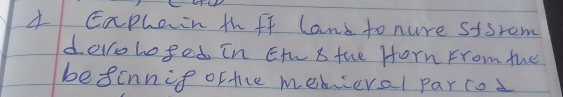 1 Explain th ff land tonure system
developed in Eth & the Horn From the
beginnif of the medieval Parcod